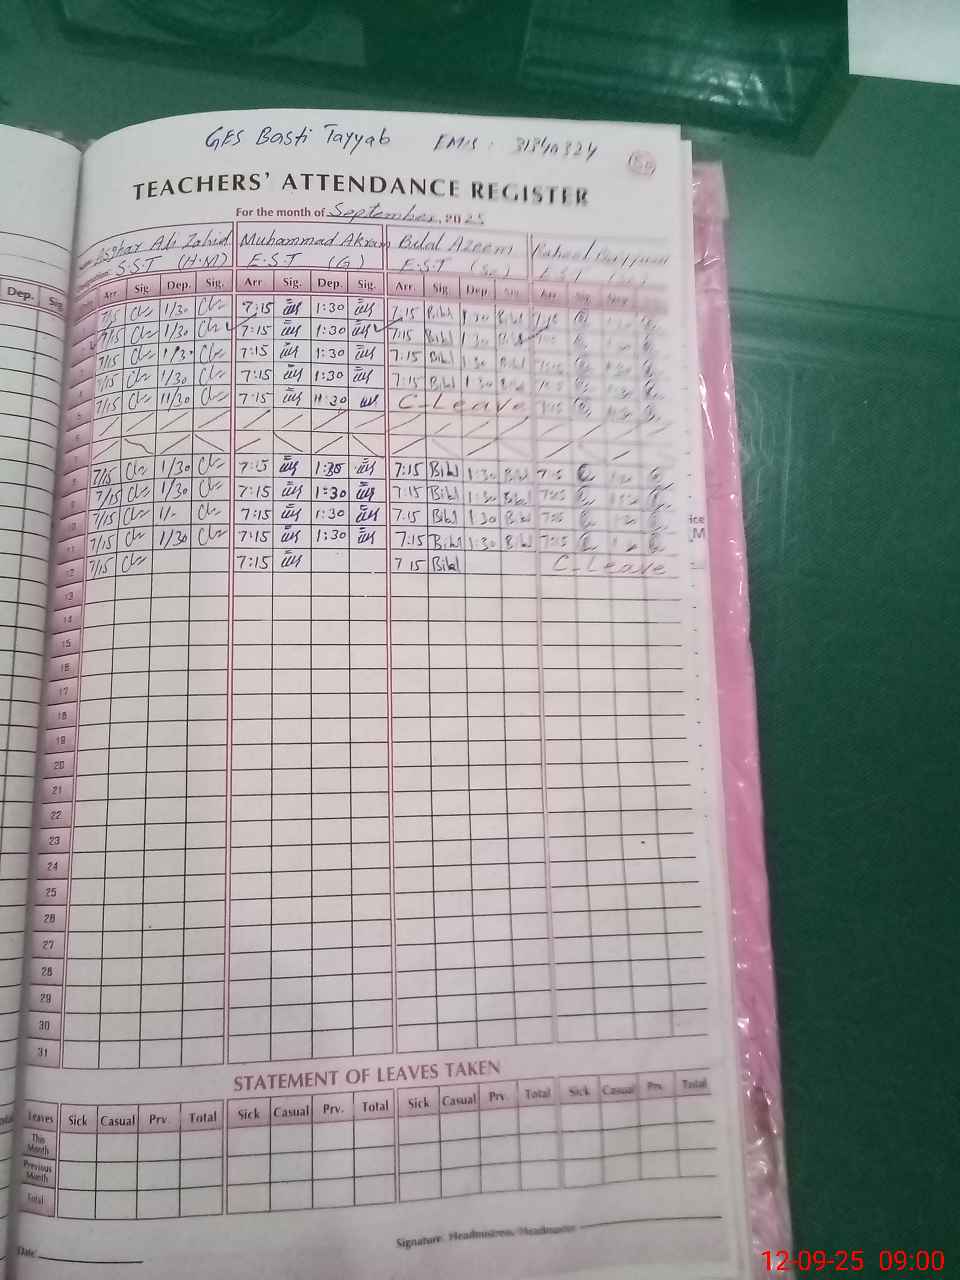 GES Basti Tayyab EMIS : 31840324
56
TEACHERS' ATTENDANCE REGISTER
For the month of September, 2025
Asghar Ali Zahid Muhammad Akram Bilal Azeem
S.S.T (H.M) E.S.T (G) E.S.T (Sc) E.S.T
Dep. Sig. Arr. Sig. Dep. Sig. Arr Sig. Dep. Sig. Arr. Sig. Dep. Sig. Arr. Sig. Dep.
7/15 1/30 7:15 1:30 7:15 Bilal 1:30 Bilal
7/15 1/30 7:15 1:30 7:15 Bilal 1:30 Bilal
7/15 1/30 7:15 1:30 7:15 Bilal 1:30 Bilal
7/15 1/30 7:15 1:30 7:15 Bilal 1:30 Bilal
7/15 11/30 7:15 11:30 C-Leave 7:15
8 7/15 1/30 7:15 1:30 7:15 Bilal 1:30 Bilal 7:15
9 7/15 1/30 7:15 1:30 7:15 Bilal 1:30 Bilal 7:15
10 7/15 1/- 7:15 1:30 7:15 Bilal 1:30 Bilal 7:15
11 7/15 1/30 7:15 1:30 7:15 Bilal 1:30 Bilal 7:15
12 7/15 7:15 7 15 Bilal C-Leave
13
14
15
16
17
18
19
20
21
22
23
24
25
26
27
28
29
30
31
STATEMENT OF LEAVES TAKEN
Leaves Sick Casual Prv. Total Sick Casual Prv. Total Sick Casual Prv. Total Sick Casual Prv. Total
This Month
Previous Month
Total
Date
Signature: Headmistress/Headmaster
12-09-25 09:00